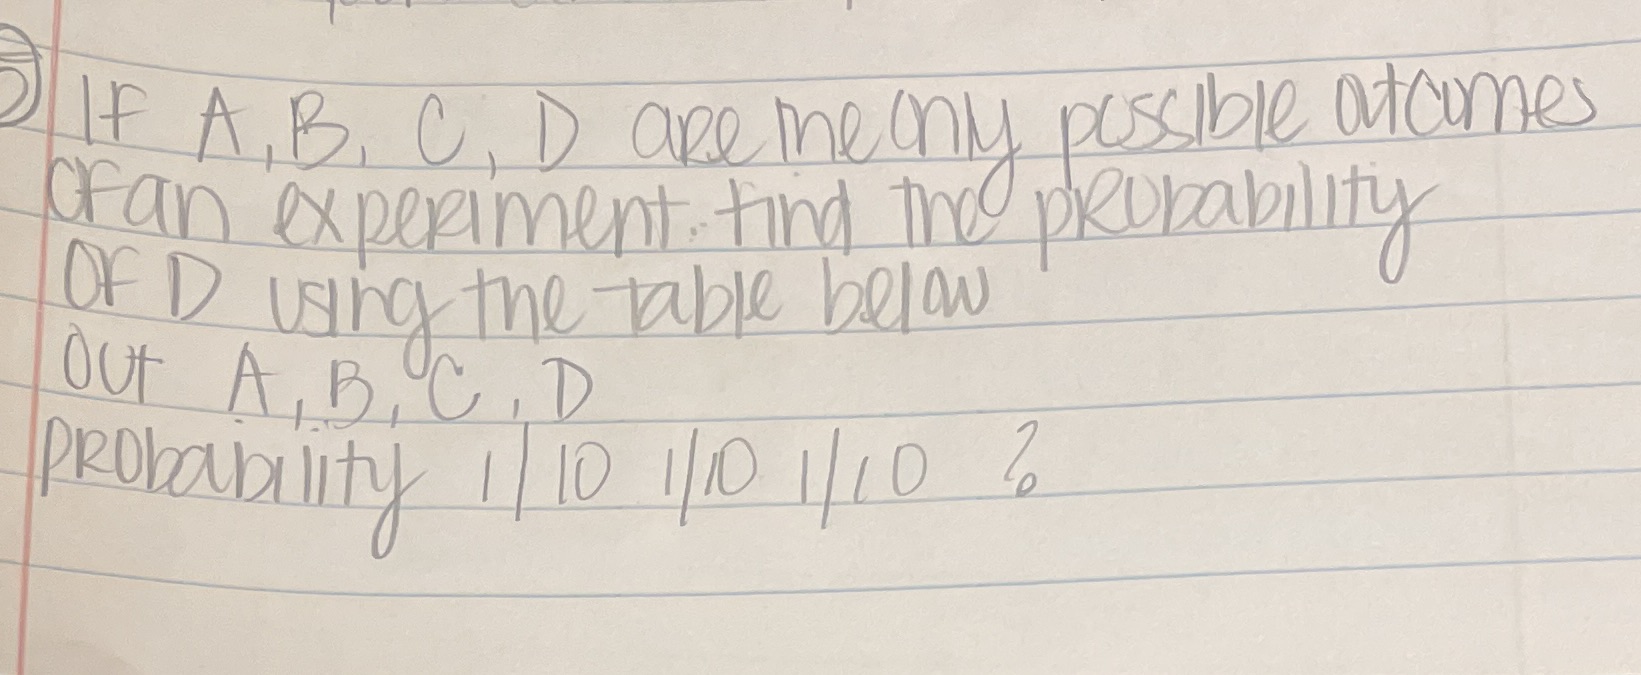 If A, B, C, D are the only possible outcomes
of an experiment. find the probability
of D using the table below
Out A, B, C, D
Probability 1/10 1/10 1/10 ?